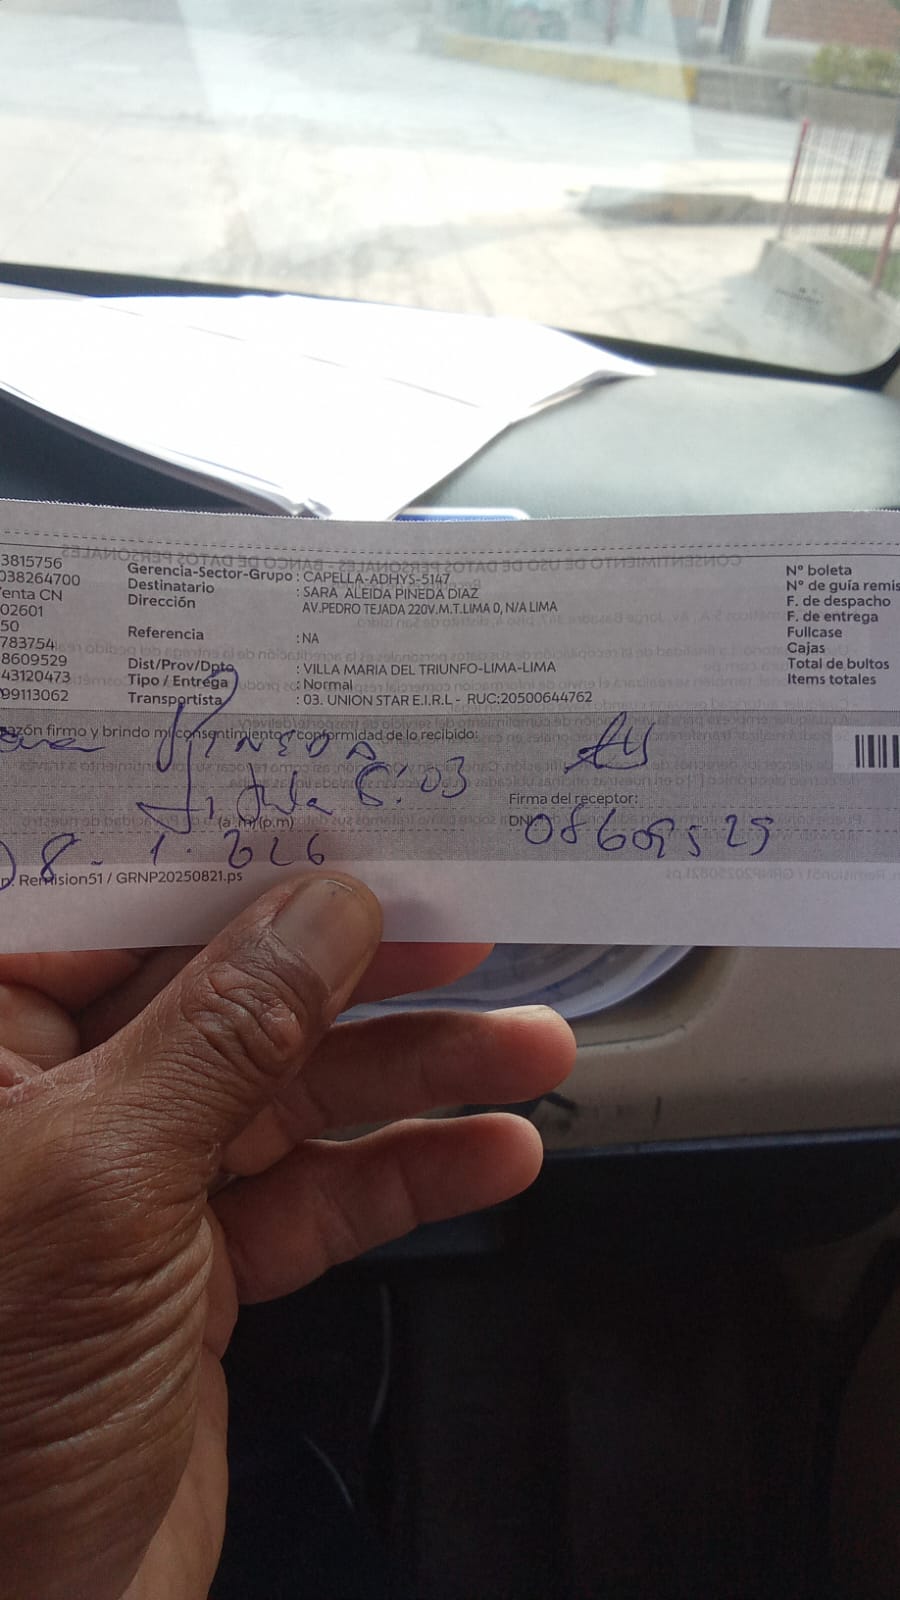 3815756
038264700
enta CN
02601
50
783754
8609529
43120473
99113062
Gerencia-Sector-Grupo : CAPELLA-ADHYS-5147
Destinatario : SARA ALEIDA PINEDA DIAZ
Dirección AV.PEDRO TEJADA 220V.M.T.LIMA 0, N/A LIMA
Referencia : NA
Dist/Prov/Dpto : VILLA MARIA DEL TRIUNFO-LIMA-LIMA
Tipo / Entrega : Normal
Transportista : 03. UNION STAR E.I.R.L - RUC:20500644762
N° boleta
N° de guía remis
F. de despacho
F. de entrega
Fullcase
Cajas
Total de bultos
Items totales
azón firmo y brindo mi consentimiento y conformidad de lo recibido:
PINEDA
Titula 6:03
(a.m)(p.m)
Firma del receptor:
DNI: 08609529
08-1.2026
n. Remision51 / GRNP20250821.ps